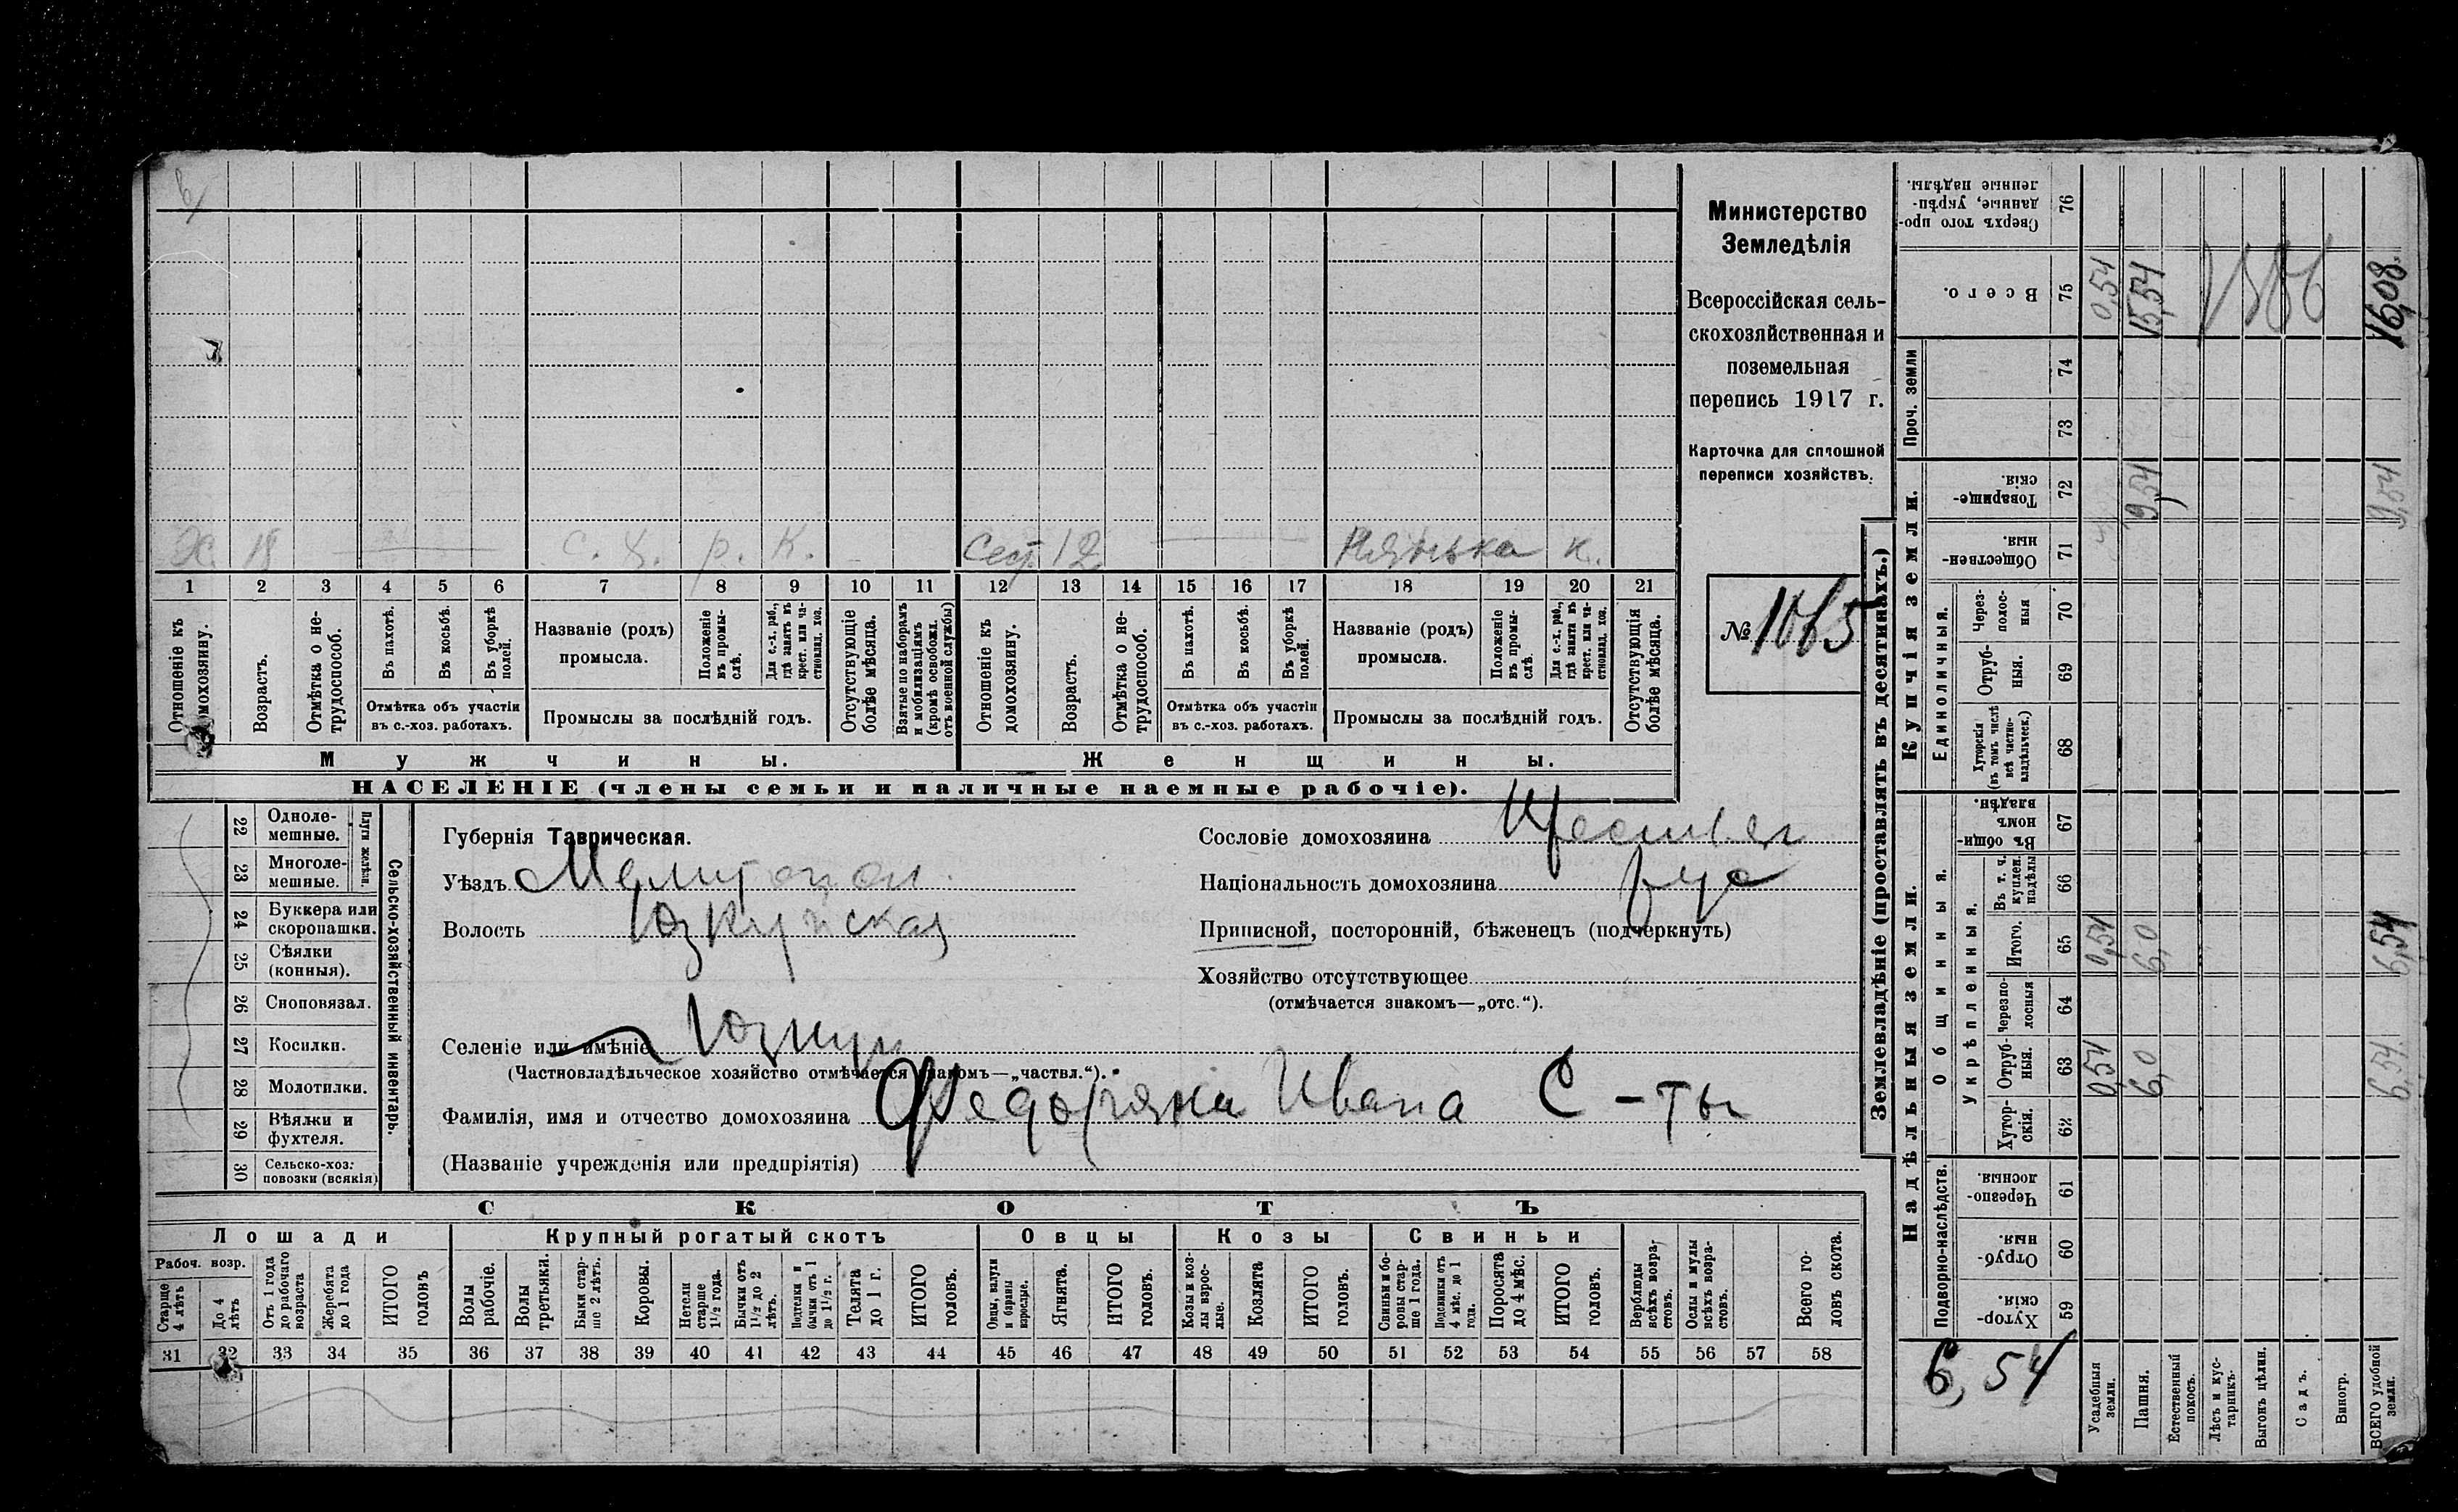 Министерство
Земледѣлія
Всероссійская сель-
скохозяйственная и
поземельная
перепись 1917 г.
Карточка для сплошной
переписи хозяйствъ.
Х. 18 с. х. р. К.
Сест. 12 Нянька к.
1 2 3 4 5 6 7 8 9 10 11 12 13 14 15 16 17 18 19 20 21
Отношеніе къ
домохозяину.
Возрастъ.
Отмѣтка о не-
трудоспособ.
Въ пахотѣ.
Въ косьбѣ.
Въ уборкѣ
полей.
Отмѣтка объ участіи
въ с.-хоз. работахъ.
Названіе (родъ)
промысла.
Положеніе
въ промы-
слѣ.
Для с.-х. раб.,
гдѣ занятъ въ
крест. или ча-
стновлад. хоз.
Промыслы за послѣдній годъ.
Отсутствующіе
болѣе мѣсяца.
Взятые по наборамъ
и мобилизаціямъ
(кромѣ освобожд.
отъ военной службы)
Отношеніе къ
домохозяину.
Возрастъ.
Отмѣтка о не-
трудоспособ.
Въ пахотѣ.
Въ косьбѣ.
Въ уборкѣ
полей.
Отмѣтка объ участіи
въ с.-хоз. работахъ.
Названіе (родъ)
промысла.
Положеніе
въ промы-
слѣ.
Для с.-х. раб.,
гдѣ занята въ
крест. или ча-
стновлад. хоз.
Промыслы за послѣдній годъ.
Отсутствующія
болѣе мѣсяца.
Мужчины.
Женщины.
НАСЕЛЕНІЕ (члены семьи и наличные наемные рабочіе).
№ 1065
22 Одноле-
мешные.
23 Многоле-
мешные.
Плуги желѣзн.
24 Буккера или
скоропашки.
25 Сѣялки
(конныя).
26 Сноповязал.
27 Косилки.
28 Молотилки.
29 Вѣялки и
фухтеля.
30 Сельско-хоз.
повозки (всякія)
Сельско-хозяйственный инвентарь.
Губернія Таврическая.
Уѣздъ Мелитопол.
Волость Юзкуйская
Селеніе или имѣніе Юзкуи
(Частновладѣльческое хозяйство отмѣчается знакомъ—„частвл.“).
Фамилія, имя и отчество домохозяина Федоряка Ивана С-ты
(Названіе учрежденія или предпріятія)
Сословіе домохозяина Крестьян
Національность домохозяина рус
Приписной, посторонній, бѣженецъ (подчеркнуть)
Хозяйство отсутствующее
(отмѣчается знакомъ—„отс.“).
СКОТЪ
Лошади
Крупный рогатый скотъ
Овцы
Козы
Свиньи
Рабоч. возр.
Старше
4 лѣтъ
До 4
лѣтъ
Отъ 1 года
до рабочаго
возраста
Жеребята
до 1 года
ИТОГО
головъ
Волы
рабочіе.
Волы
третьяки.
Быки стар-
ше 2 лѣтъ.
Коровы.
Нетели
старше
1½ года.
Бычки отъ
1½ до 2
лѣтъ.
Подтелки и
бычки отъ 1
до 1½ г.
Телята
до 1 г.
ИТОГО
головъ.
Овцы, валухи
и бараны
взрослые.
Ягнята.
ИТОГО
головъ.
Козы и коз-
лы взрос-
лые.
Козлята
ИТОГО
головъ.
Свиньи и бо-
ровы стар-
ше 1 года.
Подсвинки отъ
4 мѣс. до 1
года.
Поросята
до 4 мѣс.
ИТОГО
головъ.
Верблюды
всѣхъ возра-
стовъ.
Ослы и мулы
всѣхъ возра-
стовъ.
Всего го-
ловъ скота.
31 32 33 34 35 36 37 38 39 40 41 42 43 44 45 46 47 48 49 50 51 52 53 54 55 56 57 58
Землевладѣніе (проставлять въ десятинахъ.)
Надѣльныя земли.
Купчія земли.
Проч. земли
Подворно-наслѣдств.
Общинныя.
Укрѣпленныя.
Единоличныя.
Сверхъ того про-
данные, укрѣп-
ленные надѣлы. 76
Всего. 75 0,54 15,54 16,08
74
73
Товарище-
скія. 72 9,54 9,54
Обществен-
ныя. 71
Через-
полос-
ныя 70
Отруб-
ныя. 69
Хуторскія
(въ томъ числѣ
всѣ частно-
владѣльческ.) 68
Въ общи-
номъ
владѣн. 67
Въ т. ч.
куплен.
надѣлы 66
Итого. 65 0,54 6,0 6,54
Черезпо-
лосныя 64
Отруб-
ныя. 63 0,54 6,0 6,54
Хутор-
скія. 62
Черезпо-
лосныя. 61
Отруб-
ныя. 60
Хутор-
скія. 59
6,54
Усадебныя
земли.
Пашня.
Естественный
покосъ.
Лѣсъ и кус-
тарникъ.
Выгонъ цѣлин.
Садъ.
Виногр.
ВСЕГО удобной
земли.